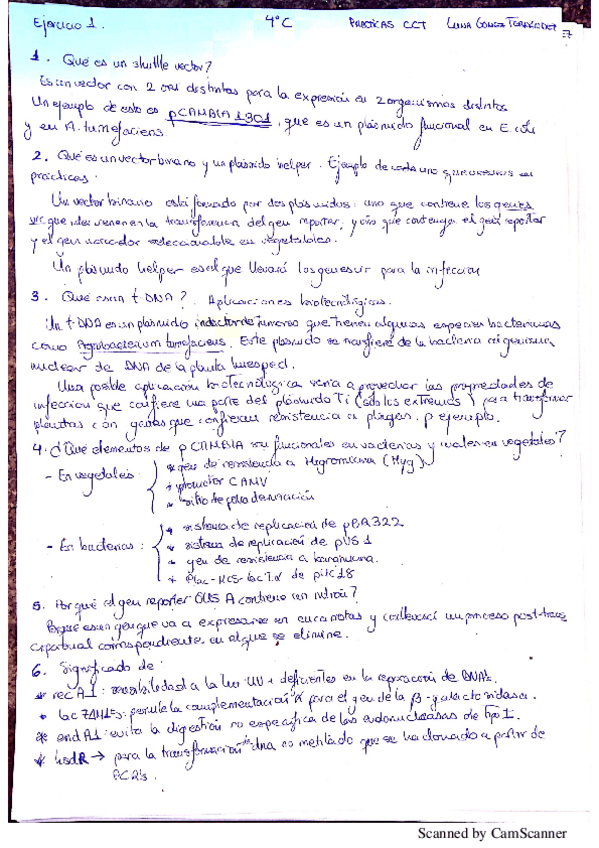 Ejercicio 1. 4ºC PRACTICAS CCT LUNA GOMEZ
1. Qué es un shuttle vector?
Es un vector con 2 ori distintos para la expresión en 2 organismos distintos
Un ejemplo de esto es pCAMBIA 1301, que es un plásmido funcional en E. coli
y en A. tumefaciens.
2. Qué es un vector binario y un plásmido helper. Ejemplo de cada uno que usamos en
prácticas.
Un vector binario está formado por dos plásmidos: uno que contiene los genes
vir que intervienen en la transferencia del gen reporter, y otro que contenga el gen reporter
y el gen marcador seleccionable en vegetales.
Un plásmido helper es el que llevará los genes vir para la infección
3. Qué es un t-DNA? Aplicaciones biotecnológicas.
Un t-DNA es un plásmido inductor de tumores que tienen algunas especies bacterianas
como Agrobacterium tumefaciens. Este plásmido se transfiere de la bacteria al genoma
nuclear de DNA de la planta huesped.
Una posible aplicación biotecnológica sería aprovechar las propiedades de
infección que confiere una parte del plásmido Ti (sólo los extremos) para transformar
plantas con genes que confieran resistencia a plagas, p ejemplo.
4. ¿Qué elementos de pCAMBIA son funcionales en bacterias y cuales en vegetales?
- En vegetales: * gen de resistencia a Higromicina (Hyg)
* promotor CAMV
* sitio de poliadenilación
- En bacterias: * sistema de replicación de pBR322
* sistema de replicación de pVS1
* gen de resistencia a kanamicina.
* Plac-MCS-lac Z α de pUC18
5. Por qué el gen reporter GUS A contiene un intrón?
Porque es un gen que va a expresarse en eucariotas y conllevará un proceso post-trans
cripcional correspondiente en el que se elimine.
6. Significado de:
* rec A1: sensibilidad a la luz UV + deficientes en la reparación de DNAs.
* lac ZΔM15: permite la complementación α para el gen de la β-galactosidasa.
* end A1: evita la digestión no específica de las endonucleasas de tipo I.
* hsdR → para la transformación de dna no metilado que se ha clonado a partir de
PCR's.
Scanned by CamScanner